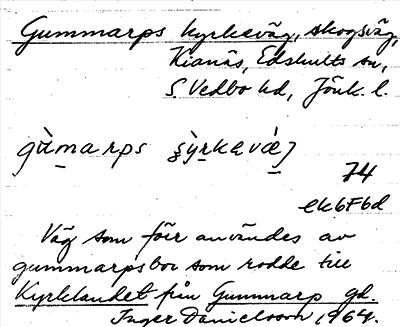 Gummarps kyrkeväg, skogsväg,
Kianäs, Edshults sn,
S. Vedbo hd, Jönk. l.
gù̀marps
74
ek6F6d
Väg som förr användes av
gummarpsbor som rodde till
Kyrklandet från Gummarp gd.
Inger Danielsson 1964.